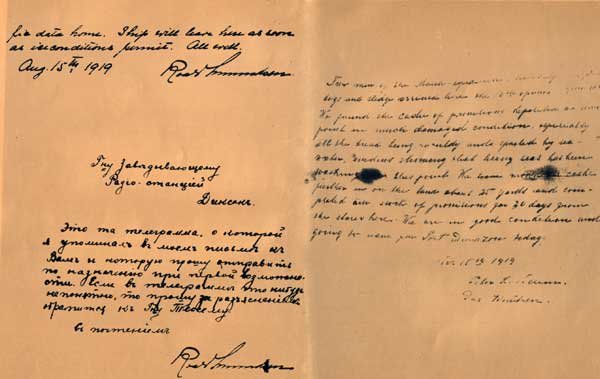 data home. Ship will leave here as soon
as ice conditions permit. All well.
Aug. 15th, 1919 Roald Amundsen.
Г-ну Заведывающему
Радіо-станцией
Диксон.
Это та телеграмма, о которой
я упоминал в моем письме к
Вам и которую прошу отправить
по назначению при первой возможно-
сти. Если в телеграмме что нибудь
непонятно, то прошу за разъяснением
обратится к Г-ну Тессему
с почтением
Roald Amundsen
men of the Maud-expedition,
dogs and sledge arrived here the
We found the cache of provisions deposited at this
point in much damaged condition, especially
all the bread being mouldy and spoiled by sea-
water, showing that heavy seas has been
washing this point. We have cache
further in on the land about 25 yards and com-
pleted our stock of provisions for 20 days from
the stores here. We are in good condition and
going to leave for Port today.
15th 1919
Peter L. Tessem.